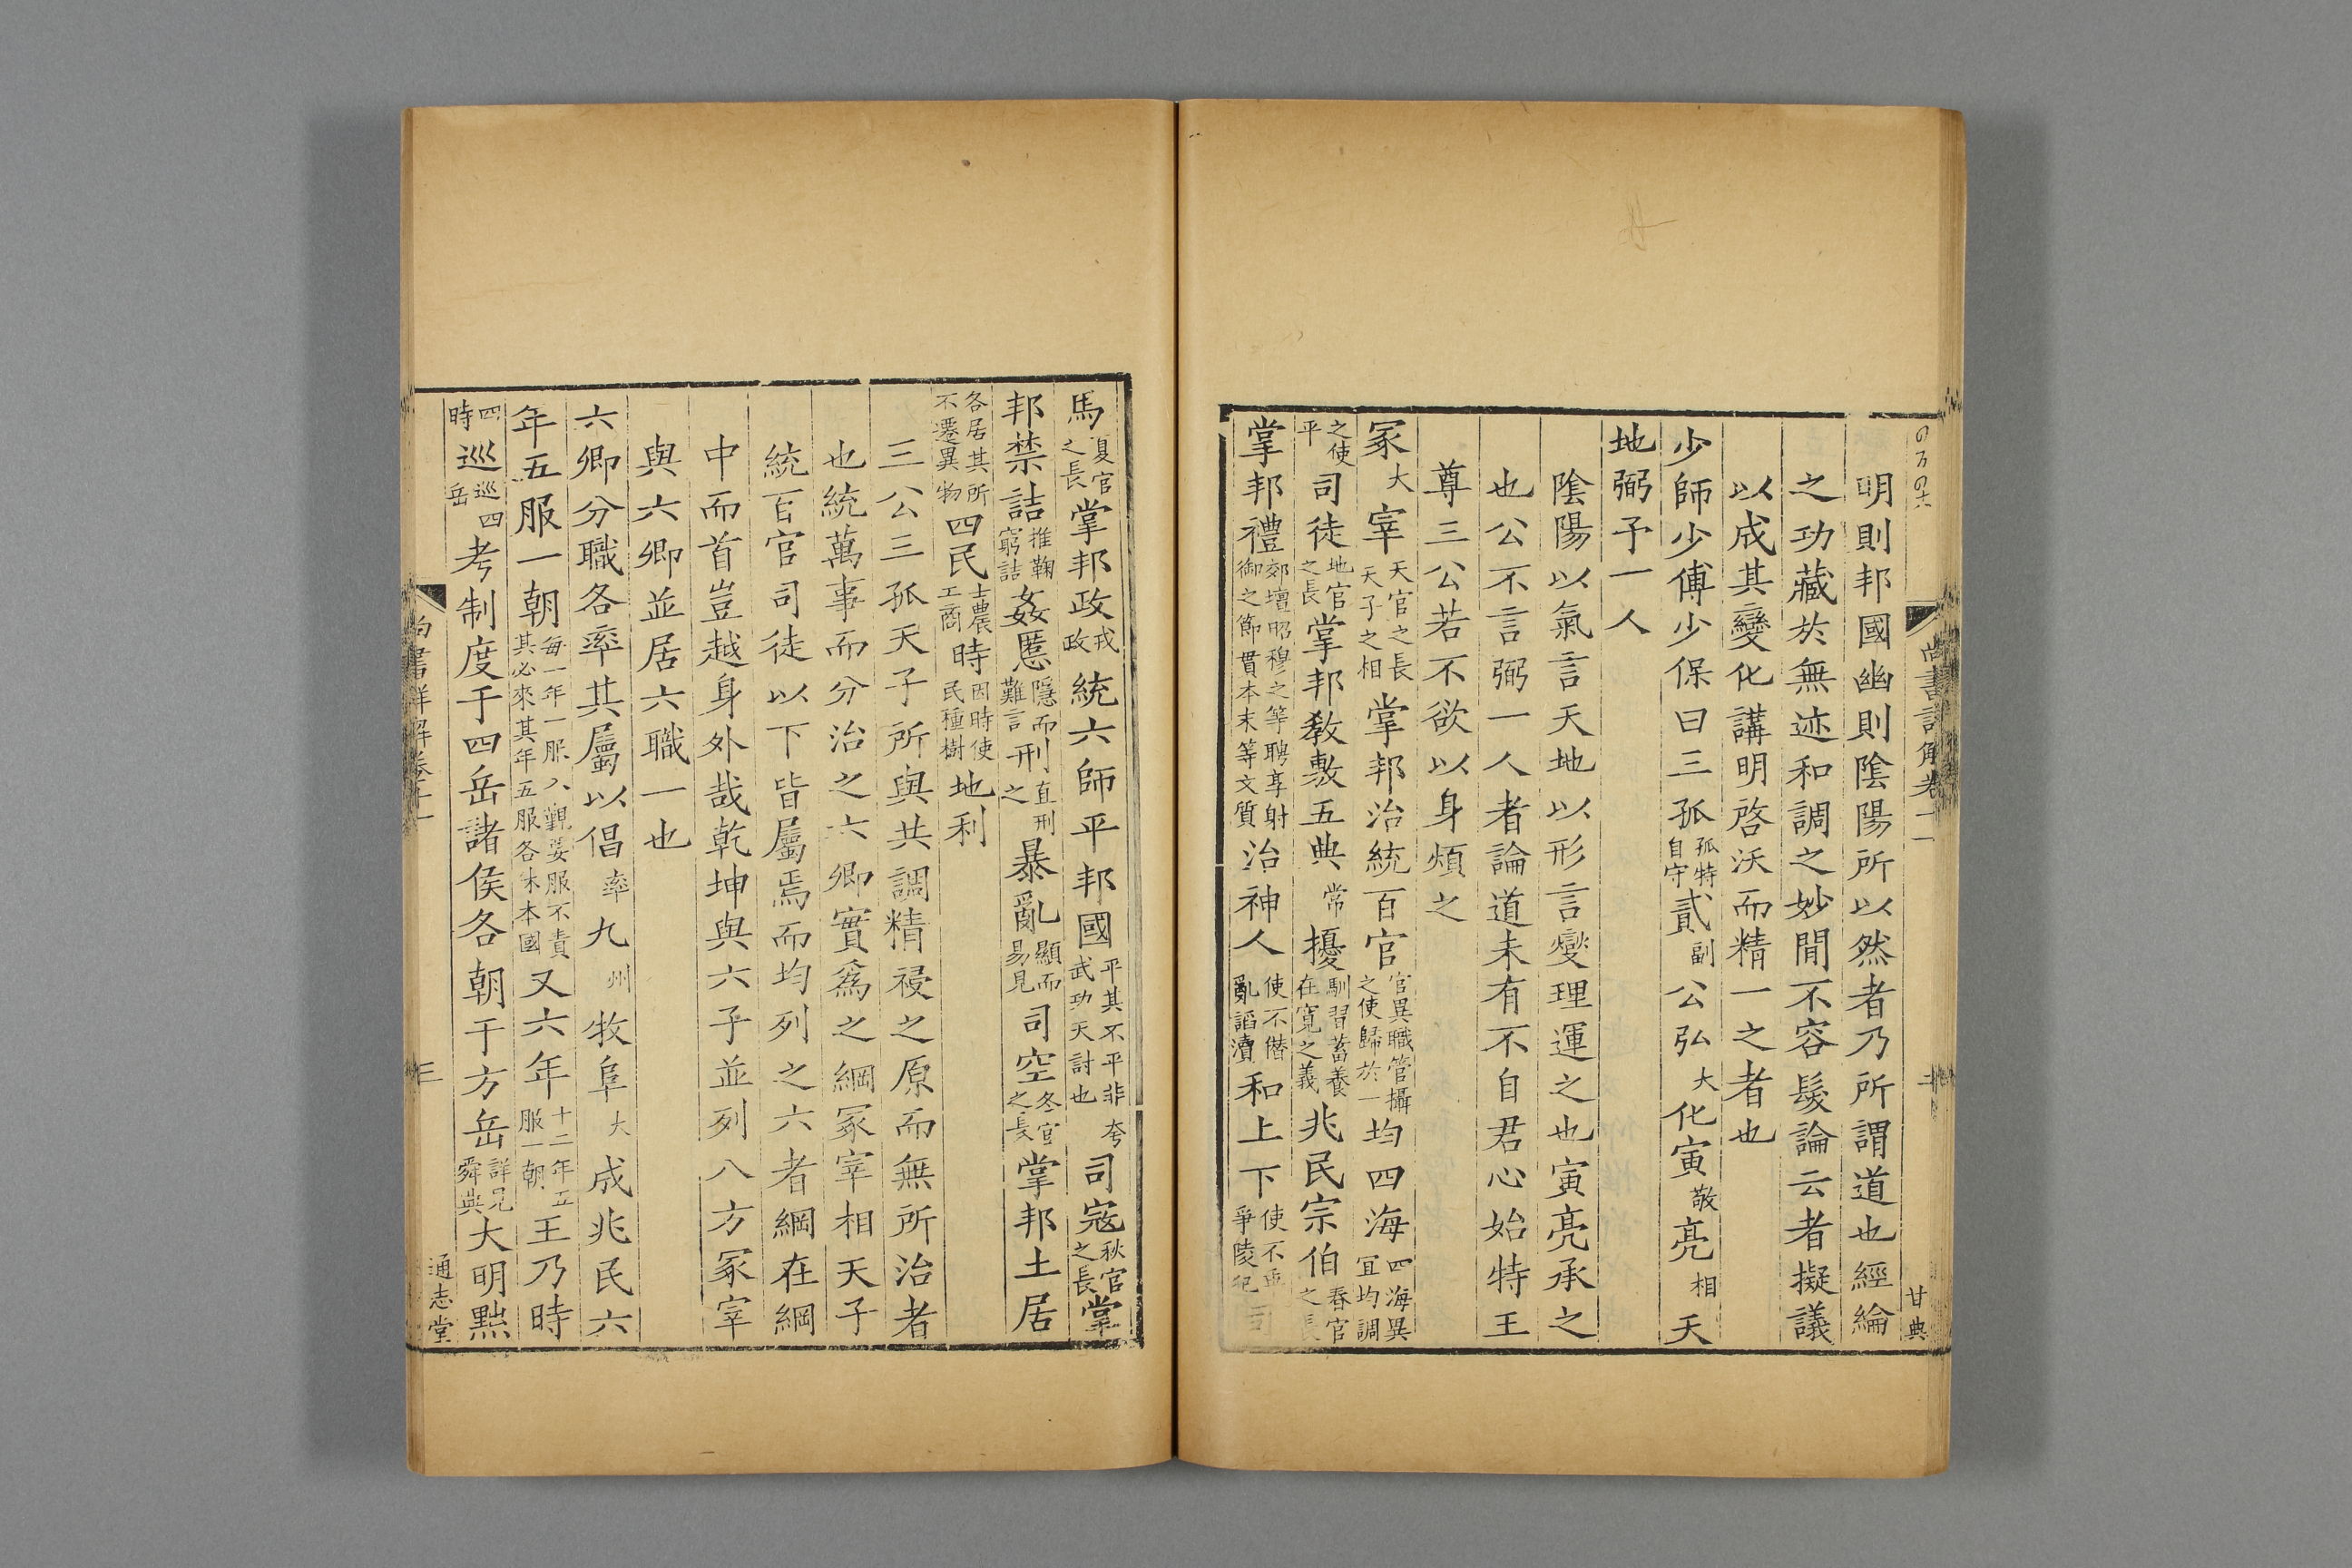 明則邦國幽則陰陽所以然者乃所謂道也經綸
之功藏於無迹和調之妙閒不容髮論云者擬議
以成其變化講明啓沃而精一之者也
少師少傅少保曰三孤孤特自守貳副公弘大化寅敬亮相天
地弼予一人
陰陽以氣言天地以形言燮理運之也寅亮承之
也公不言弼一人者論道未有不自君心始特王
尊三公若不欲以身煩之
冢大宰天官之長天子之相掌邦治統百官官異職管攝之使歸於一均四海四海異宜均調
之使平司徒地官之長掌邦敎敷五典常擾馴習蓄養在寬之義兆民宗伯春官之長
掌邦禮郊壇昭穆之等聘享射御之節貫本末等文質治神人使不僭亂謟瀆和上下使不爭陵犯司
馬夏官之長掌邦政戎政統六師平邦國平其不平非夸武功天討也司寇秋官之長掌
邦禁詰推鞫窮詰姦慝隱而難言刑直刑之暴亂顯而易見司空冬官之長掌邦土居
各居其所不遷異物四民士農工商時因時使民種樹地利
三公三孤天子所與共調精祲之原而無所治者
也統萬事而分治之六卿實爲之綱冢宰相天子
統百官司徒以下皆屬焉而均列之六者綱在綱
中而首豈越身外哉乾坤與六子並列八方冢宰
與六卿並居六職一也
六卿分職各率其屬以倡率九州牧阜大成兆民六
年五服一朝每一年一服入觀要服不責其必來其年五服各朱本國又六年十二年五服一朝王乃時
四時巡巡四岳考制度于四岳諸侯各朝于方岳詳見舜典大明黜
通志堂
甘典